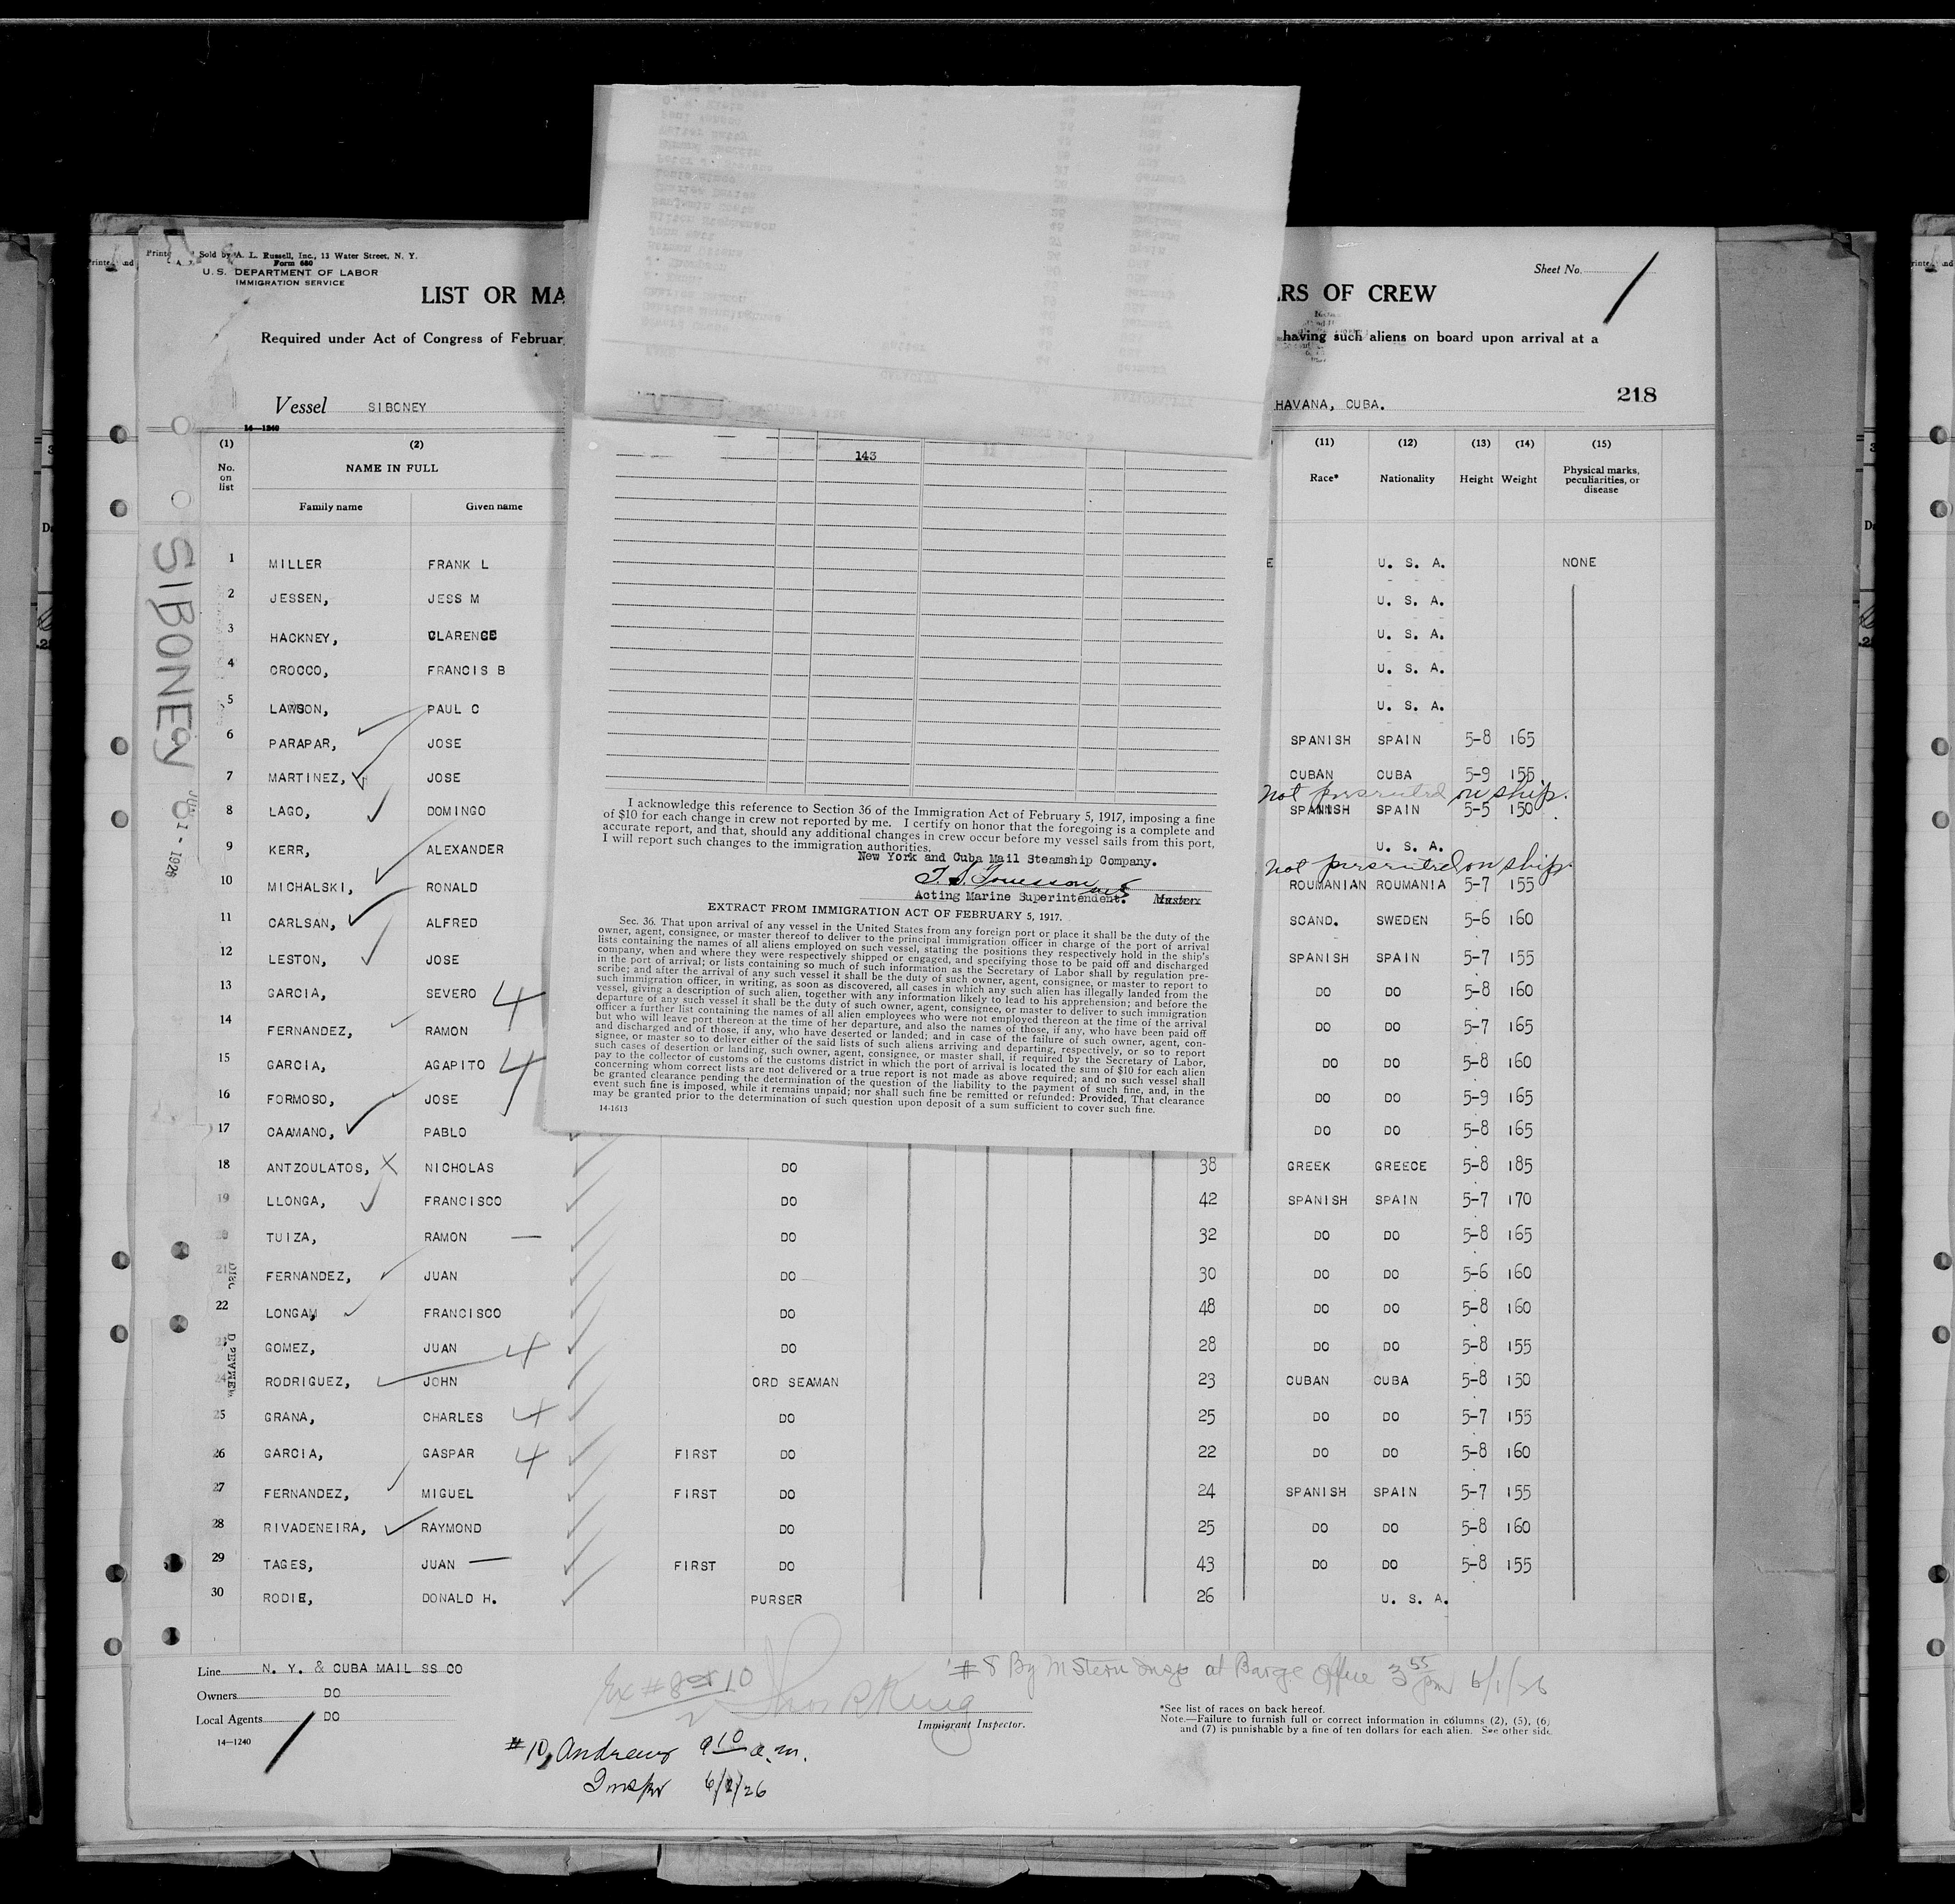 Sold by A. L. Russell, Inc., 13 Water Street, N. Y.
Form 680
U. S. DEPARTMENT OF LABOR
IMMIGRATION SERVICE
Sheet No. 1
LIST OR MA
ERS OF CREW
Required under Act of Congress of Februar
having such aliens on board upon arrival at a
Vessel SIBONEY
HAVANA, CUBA.
218
14—1240
(1) (2) (11) (12) (13) (14) (15)
No. on list
NAME IN FULL
Family name Given name
Race* Nationality Height Weight Physical marks, peculiarities, or disease
SIBONEY
JUN 1 - 1926
1 MILLER FRANK L E U. S. A. NONE
2 JESSEN, JESS M U. S. A.
3 HACKNEY, CLARENCE U. S. A.
4 CROCCO, FRANCIS B U. S. A.
5 LAWSON, PAUL C U. S. A.
6 PARAPAR, JOSE SPANISH SPAIN 5-8 165
7 MARTINEZ, JOSE CUBAN CUBA 5-9 155
not presented on ship.
8 LAGO, DOMINGO SPANISH SPAIN 5-5 150
9 KERR, ALEXANDER U. S. A.
not presented on ship.
10 MICHALSKI, RONALD ROUMANIAN ROUMANIA 5-7 155
11 CARLSAN, ALFRED SCAND. SWEDEN 5-6 160
12 LESTON, JOSE SPANISH SPAIN 5-7 155
13 GARCIA, SEVERO 4 DO DO 5-8 160
14 FERNANDEZ, RAMON DO DO 5-7 165
15 GARCIA, AGAPITO 4 DO DO 5-8 160
16 FORMOSO, JOSE DO DO 5-9 165
17 CAAMANO, PABLO DO DO 5-8 165
18 ANTZOULATOS, X NICHOLAS DO 38 GREEK GREECE 5-8 185
19 LLONGA, FRANCISCO DO 42 SPANISH SPAIN 5-7 170
20 TUIZA, RAMON — DO 32 DO DO 5-8 165
21 FERNANDEZ, JUAN DO 30 DO DO 5-6 160
22 LONGA, FRANCISCO DO 48 DO DO 5-8 160
23 GOMEZ, JUAN 4 DO 28 DO DO 5-8 155
24 RODRIGUEZ, JOHN ORD SEAMAN 23 CUBAN CUBA 5-8 150
25 GRANA, CHARLES 4 DO 25 DO DO 5-7 155
26 GARCIA, GASPAR 4 FIRST DO 22 DO DO 5-8 160
27 FERNANDEZ, MIGUEL FIRST DO 24 SPANISH SPAIN 5-7 155
28 RIVADENEIRA, RAYMOND DO 25 DO DO 5-8 160
29 TAGES, JUAN — FIRST DO 43 DO DO 5-8 155
30 RODIE, DONALD H. PURSER 26 U. S. A.
143
I acknowledge this reference to Section 36 of the Immigration Act of February 5, 1917, imposing a fine
of $10 for each change in crew not reported by me. I certify on honor that the foregoing is a complete and
accurate report, and that, should any additional changes in crew occur before my vessel sails from this port,
I will report such changes to the immigration authorities.
New York and Cuba Mail Steamship Company.
Acting Marine Superintendent. Master
EXTRACT FROM IMMIGRATION ACT OF FEBRUARY 5, 1917.
Sec. 36. That upon arrival of any vessel in the United States from any foreign port or place it shall be the duty of the
owner, agent, consignee, or master thereof to deliver to the principal immigration officer in charge of the port of arrival
lists containing the names of all aliens employed on such vessel, stating the positions they respectively hold in the ship's
company, when and where they were respectively shipped or engaged, and specifying those to be paid off and discharged
in the port of arrival; or lists containing so much of such information as the Secretary of Labor shall by regulation pre-
scribe; and after the arrival of any such vessel it shall be the duty of such owner, agent, consignee, or master to report to
such immigration officer, in writing, as soon as discovered, all cases in which any such alien has illegally landed from the
vessel, giving a description of such alien, together with any information likely to lead to his apprehension; and before the
departure of any such vessel it shall be the duty of such owner, agent, consignee, or master to deliver to such immigration
officer a further list containing the names of all alien employees who were not employed thereon at the time of the arrival
but who will leave port thereon at the time of her departure, and also the names of those, if any, who have been paid off
and discharged and of those, if any, who have deserted or landed; and in case of the failure of such owner, agent, con-
signee, or master so to deliver either of the said lists of such aliens arriving and departing, respectively, or so to report
such cases of desertion or landing, such owner, agent, consignee, or master shall, if required by the Secretary of Labor,
pay to the collector of customs of the customs district in which the port of arrival is located the sum of $10 for each alien
concerning whom correct lists are not delivered or a true report is not made as above required; and no such vessel shall
be granted clearance pending the determination of the question of the liability to the payment of such fine, and, in the
event such fine is imposed, while it remains unpaid; nor shall such fine be remitted or refunded: Provided, That clearance
may be granted prior to the determination of such question upon deposit of a sum sufficient to cover such fine.
14-1613
Line N. Y. & CUBA MAIL SS CO
Owners DO
Local Agents DO
14—1240
Ex # 8 & 10
Thos R King
Immigrant Inspector.
# 8 By M Stern Insp at Barge Office 3 55 pm 6/1/26
*See list of races on back hereof.
Note.—Failure to furnish full or correct information in columns (2), (5), (6)
and (7) is punishable by a fine of ten dollars for each alien. See other side.
# 10, Andrews 9 10 a.m.
Inspr 6/2/26